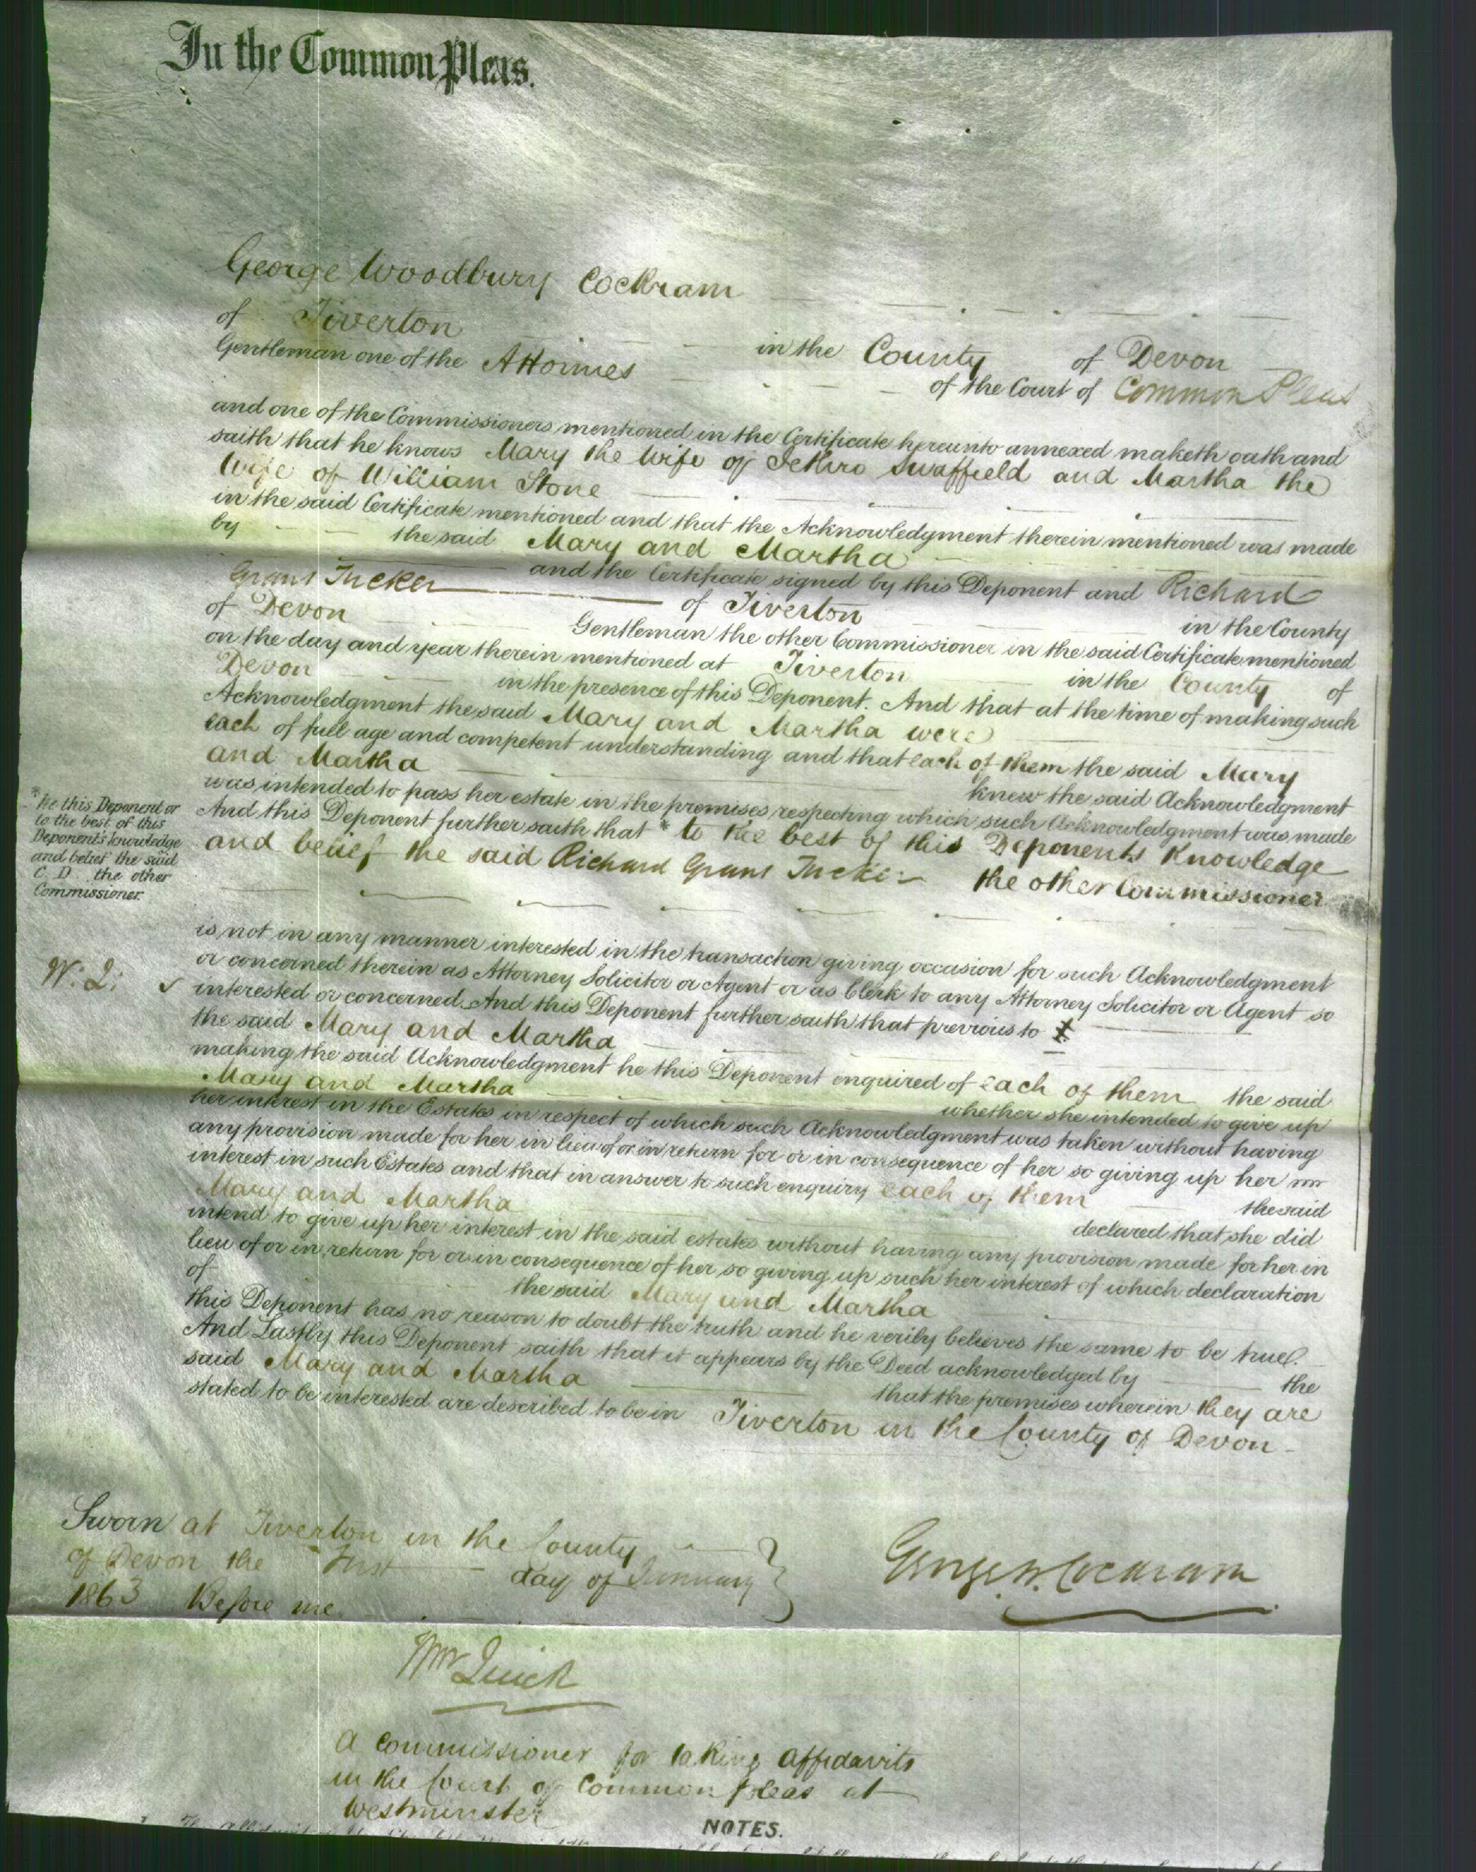 In the Common Pleas.
George Woodbury Cockram
of Tiverton in the County of Devon
Gentleman one of the Attornies of the Court of Common Pleas
and one of the Commissioners mentioned in the Certificate hereunto annexed maketh oath and
saith that he knows Mary the Wife of Jethro Swaffield and Martha the
Wife of William Stone
in the said Certificate mentioned and that the Acknowledgment therein mentioned was made
by the said Mary and Martha
and the Certificate signed by this Deponent and Richard
Grant Tucker of Tiverton in the County
of Devon Gentleman the other Commissioner in the said Certificate mentioned
on the day and year therein mentioned at Tiverton in the County of
Devon in the presence of this Deponent. And that at the time of making such
Acknowledgment the said Mary and Martha were
each of full age and competent understanding and that each of them the said Mary
and Martha knew the said Acknowledgment
was intended to pass her estate in the premises respecting which such Acknowledgment was made
And this Deponent further saith that * to the best of this Deponents Knowledge
and belief the said Richard Grant Tucker the other Commissioner
* he this Deponent or
to the best of this
Deponent's knowledge
and belief the said
C. D. the other
Commissioner.
is not in any manner interested in the transaction giving occasion for such Acknowledgment
or concerned therein as Attorney Solicitor or Agent or as Clerk to any Attorney Solicitor or Agent so
W: Q: interested or concerned. And this Deponent further saith that previous to
the said Mary and Martha
making the said Acknowledgment he this Deponent enquired of each of them the said
Mary and Martha whether she intended to give up
her interest in the Estates in respect of which such Acknowledgment was taken without having
any provision made for her in lieu of or in return for or in consequence of her so giving up her
interest in such Estates and that in answer to such enquiry each of them the said
Mary and Martha declared that she did
intend to give up her interest in the said estates without having any provision made for her in
lieu of or in return for or in consequence of her so giving up such her interest of which declaration
of the said Mary and Martha
this Deponent has no reason to doubt the truth and he verily believes the same to be true.
And Lastly this Deponent saith that it appears by the Deed acknowledged by the
said Mary and Martha that the premises wherein they are
stated to be interested are described to be in Tiverton in the County of Devon
Sworn at Tiverton in the County
of Devon the First day of January
1863 Before me
George W. Cockram
Wm Quick
A Commissioner for taking affidavits
in the Court of Common Pleas at
Westminster
NOTES.